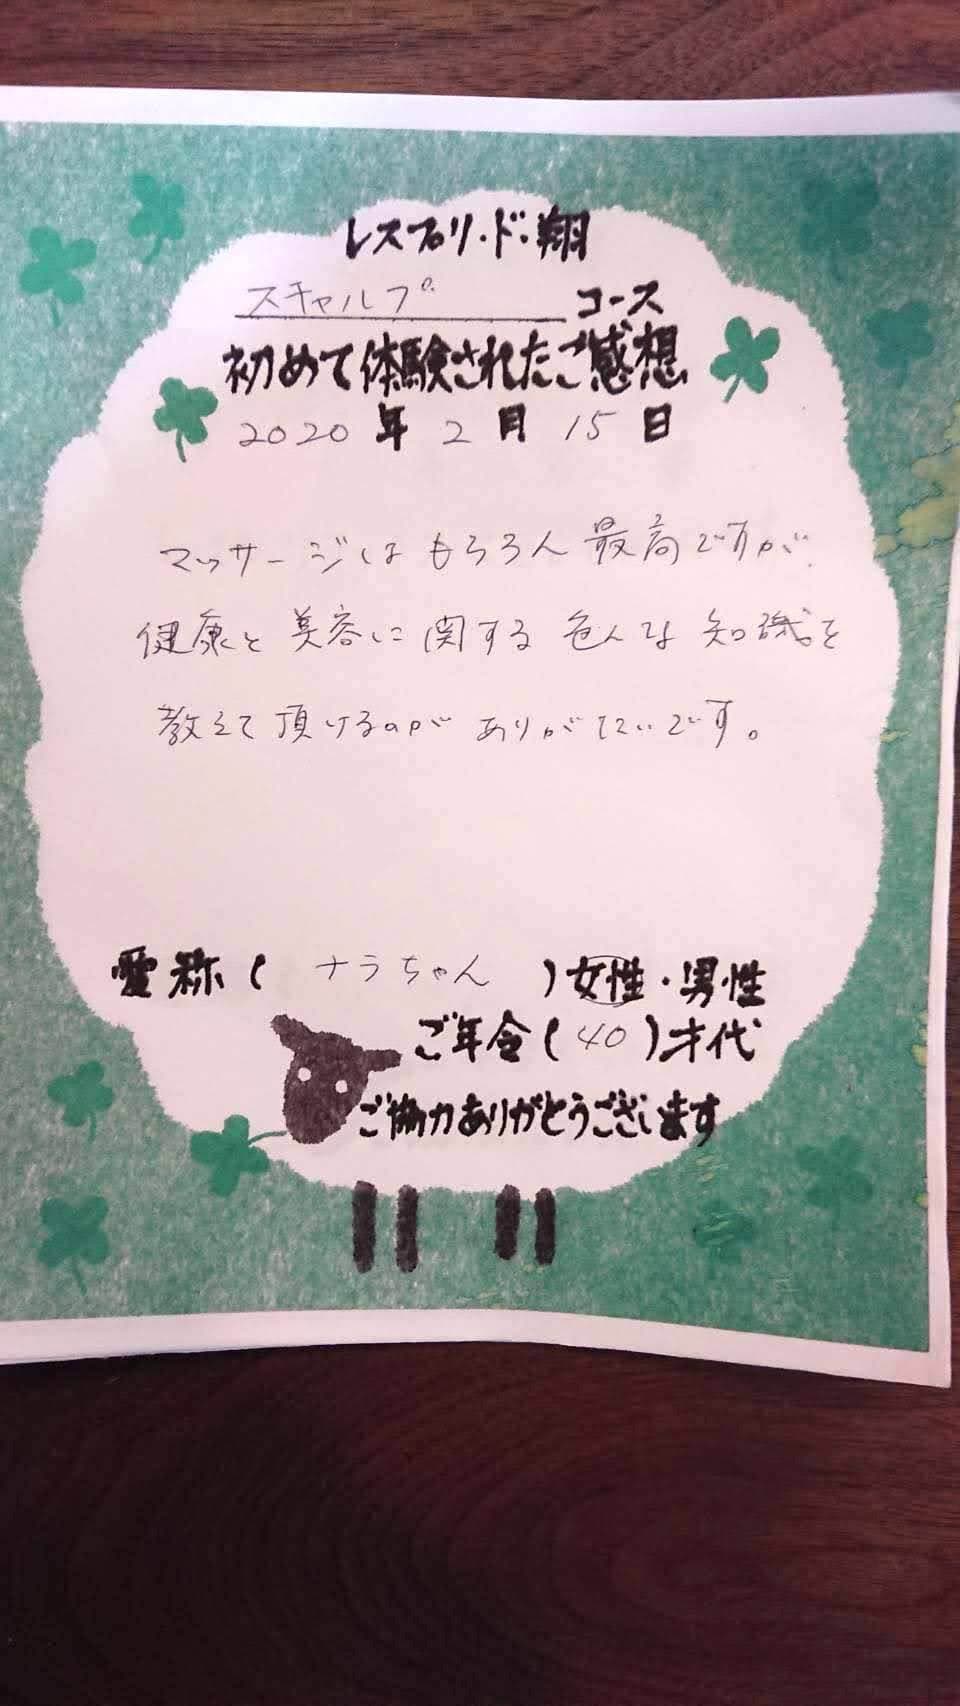 レスプリ・ド・翔
スキャルプ コース
初めて体験されたご感想
2020 年 2 月 15 日
マッサージはもちろん最高ですが
健康と美容に関する色んな知識を
教えて頂けるのがありがたいです。
愛称( ナラちゃん )女性・男性
ご年令(40)才代
ご協力ありがとうございます